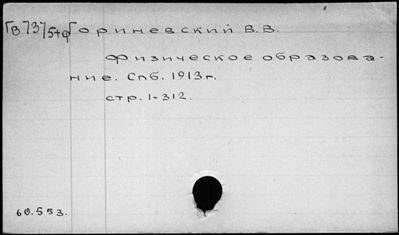 ГВ 737/5+ф Гориневский В.В.
Физическое образова-
ние. Спб. 1913 г.
стр. 1-312.
60.553.